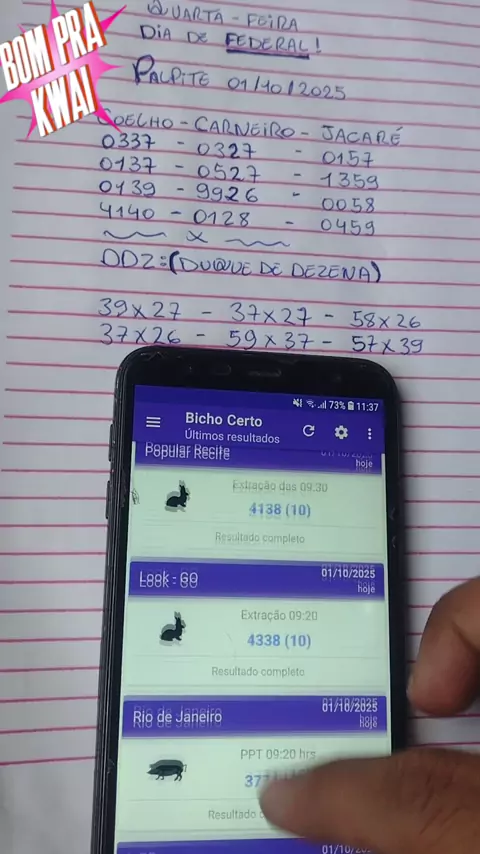 BOM PRA
KWAI
QUARTA - FEIRA
DIA DE FEDERAL!
PALPITE 01/10/2025
COELHO - CARNEIRO - JACARÉ
0337 - 0327 - 0157
0137 - 0527 - 1359
0139 - 9926 - 0058
4140 - 0128 - 0459
x
DDZ:(DUQUE DE DEZENA)
39x27 - 37x27 - 58x26
37x26 - 59x37 - 57x39
73% 11:37
Bicho Certo
Últimos resultados
Popular Recife
01/10/2025
hoje
Extração das 09:30
4138 (10)
Resultado completo
Look - GO
01/10/2025
hoje
Extração 09:20
4338 (10)
Resultado completo
Rio de Janeiro
01/10/2025
hoje
PPT 09:20 hrs
Resultado
01/10/2025